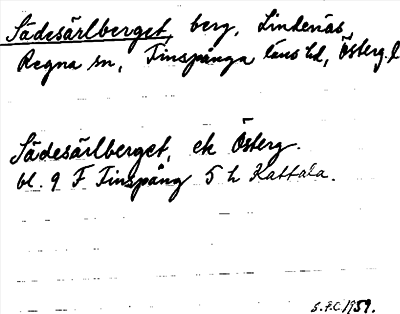 Sädesärlberget, berg, Lindenäs,
Regna sn, Finspånga läns hd, Österg. l
Sädesärlberget, ek Österg.
bl. 9 F Finspång 5 h Kattala.
S.F.C. 1959.